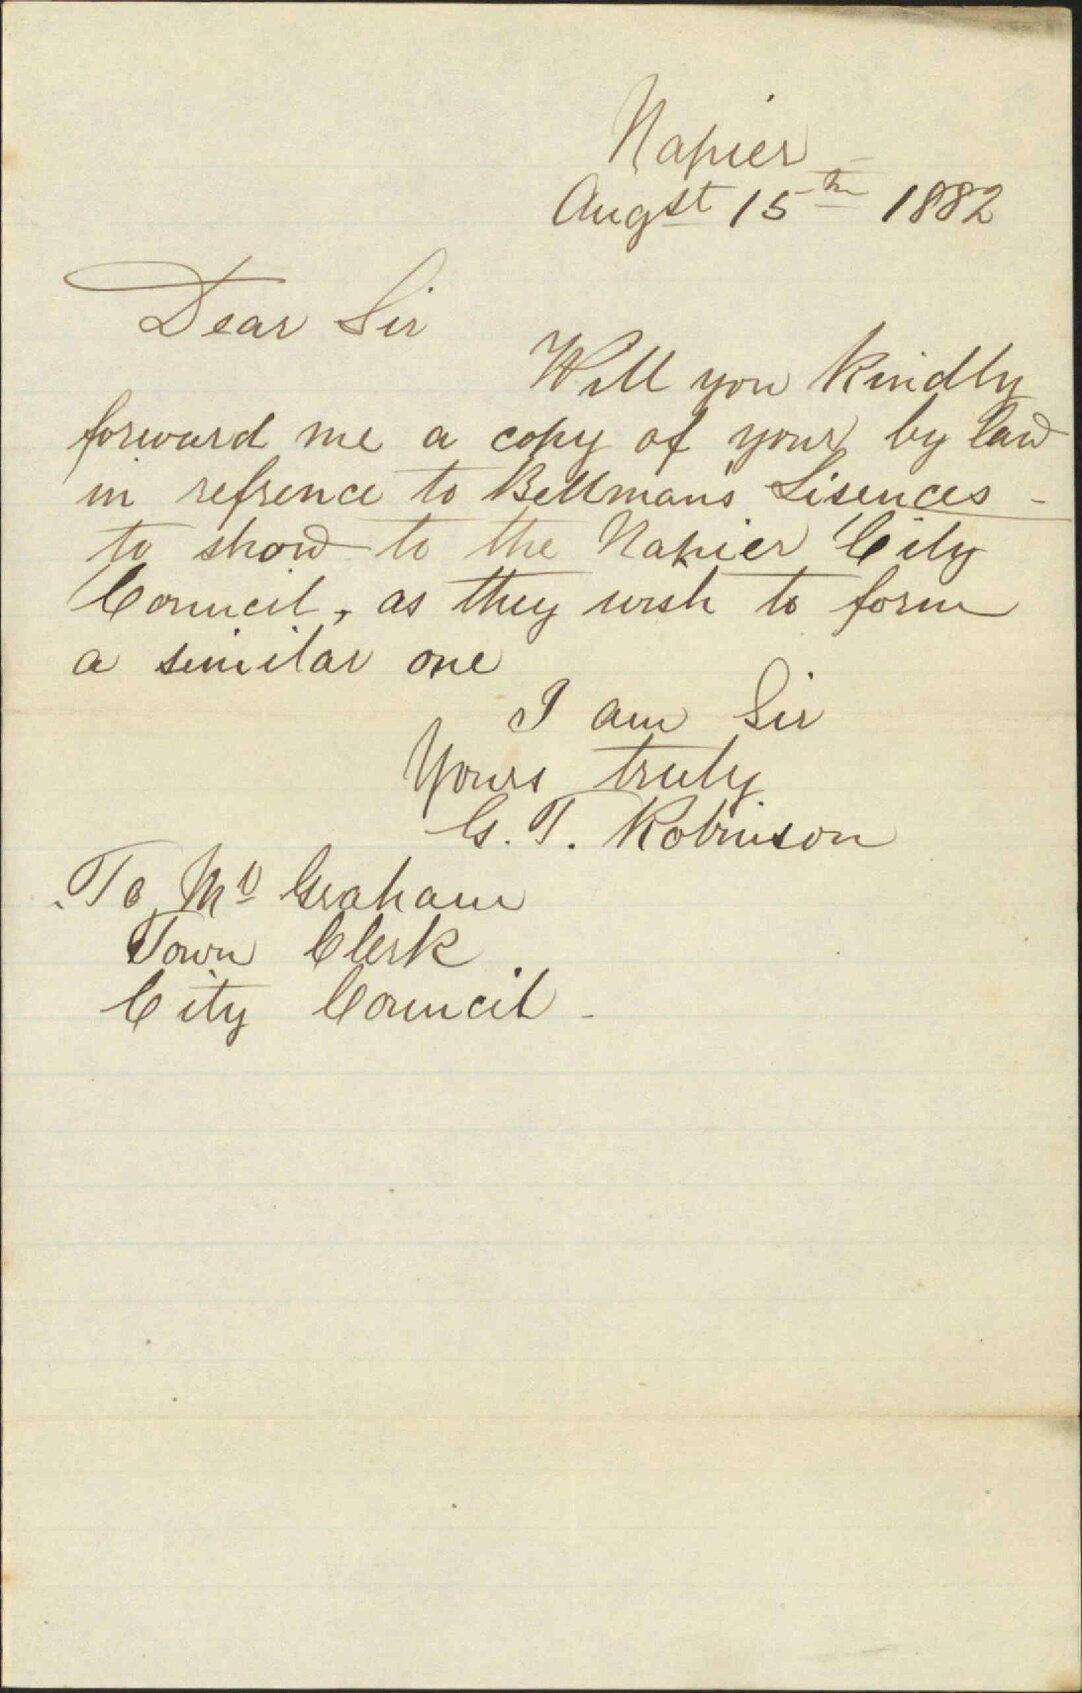 Napier
Augst 15th 1882
Dear Sir
Will you kindly
forward me a copy of your by law
in refrence to Bellman's Lisences -
to show to the Napier City
Council, as they wish to form
a similar one
I am Sir
Yours truly
G. T. Robinson
To Mr Graham
Town Clerk
City Council -